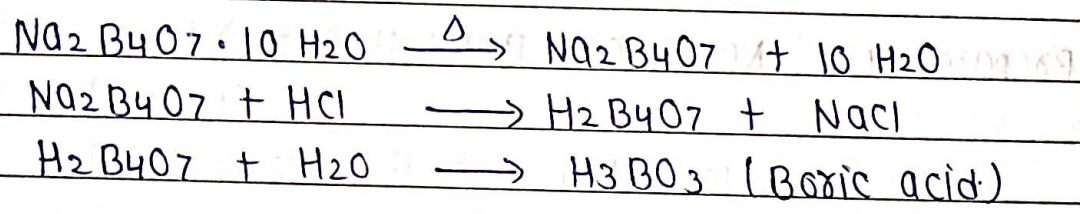 Na2 B4O7 . 10 H2O —Δ→ Na2 B4O7 + 10 H2O
Na2 B4O7 + HCl → H2 B4O7 + NaCl
H2 B4O7 + H2O → H3 BO3 (Boric acid.)